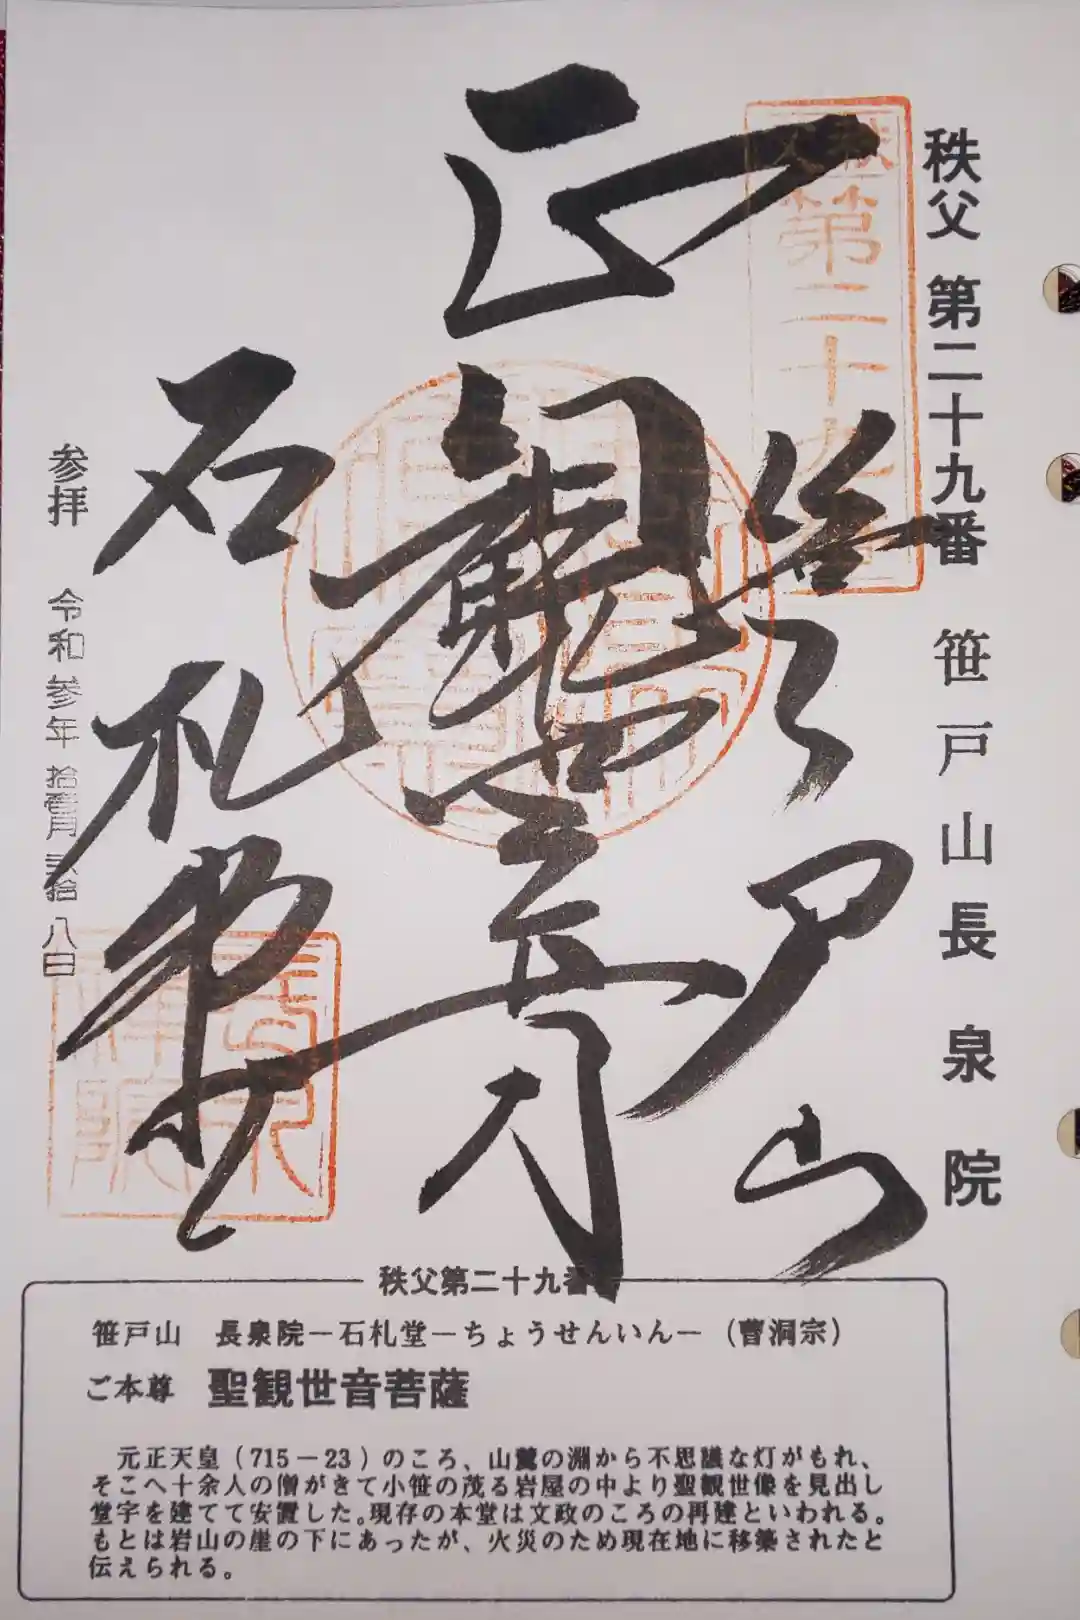 秩父 第二十九番 笹戸山長泉院
秩父
第二十九番
笹戸山
正観世音
石札堂
参拝 令和参年拾壱月弐拾八日
長泉禅院
秩父第二十九番
笹戸山 長泉院－石札堂－ちょうせんいん－(曹洞宗)
ご本尊 聖観世音菩薩
元正天皇(715－23)のころ、山麓の淵から不思議な灯がもれ、
そこへ十余人の僧がきて小笹の茂る岩屋の中より聖観世像を見出し
堂宇を建てて安置した。現存の本堂は文政のころの再建といわれる。
もとは岩山の崖の下にあったが、火災のため現在地に移築されたと
伝えられる。